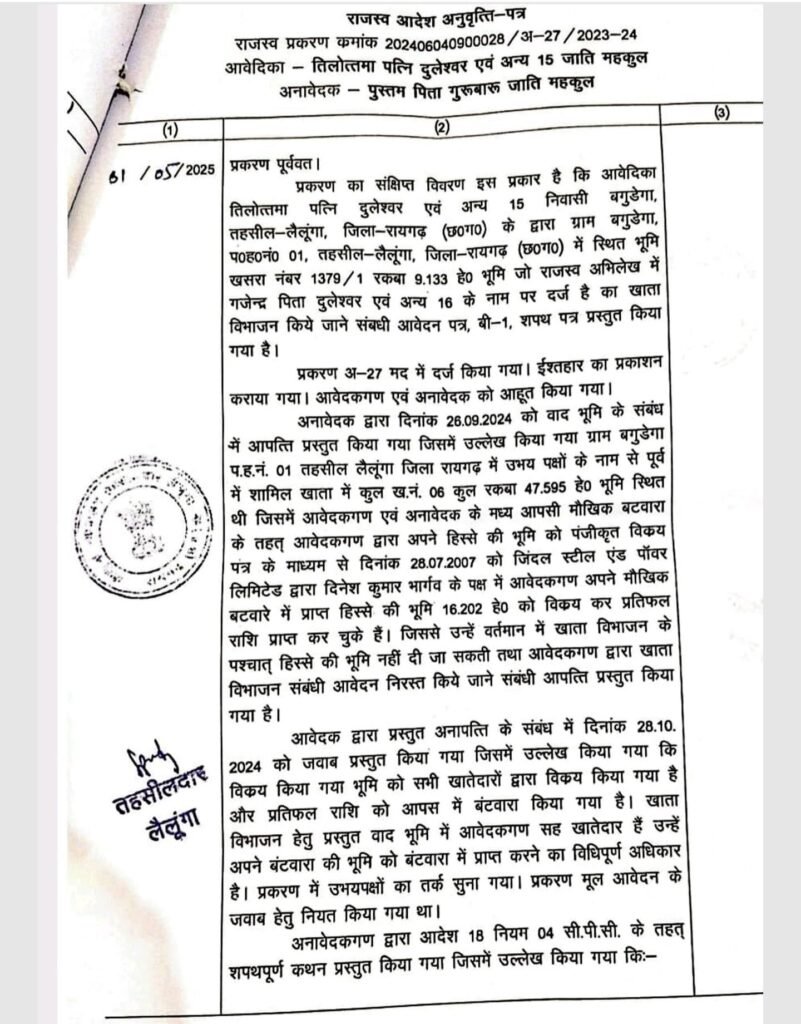 राजस्व आदेश अनुवृत्ति–पत्र
राजस्व प्रकरण कमांक 202406040900028/अ–27/2023–24
आवेदिका – तिलोत्तमा पत्नि दुलेश्वर एवं अन्य 15 जाति महकुल
अनावेदक – पुस्तम पिता गुरूबारू जाति महकुल
(1) (2) (3)
31/05/2025
प्रकरण पूर्ववत।
प्रकरण का संक्षिप्त विवरण इस प्रकार है कि आवेदिका
तिलोत्तमा पत्नि दुलेश्वर एवं अन्य 15 निवासी बगुडेगा,
तहसील–लैलूंगा, जिला–रायगढ़ (छ0ग0) के द्वारा ग्राम बगुडेगा,
प0ह0नं0 01, तहसील–लैलूंगा, जिला–रायगढ़ (छ0ग0) में स्थित भूमि
खसरा नंबर 1379/1 रकबा 9.133 हे0 भूमि जो राजस्व अभिलेख में
गजेन्द्र पिता दुलेश्वर एवं अन्य 16 के नाम पर दर्ज है का खाता
विभाजन किये जाने संबधी आवेदन पत्र, बी–1, शपथ पत्र प्रस्तुत किया
गया है।
प्रकरण अ–27 मद में दर्ज किया गया। ईश्तहार का प्रकाशन
कराया गया। आवेदकगण एवं अनावेदक को आहूत किया गया।
अनावेदक द्वारा दिनांक 26.09.2024 को वाद भूमि के संबंध
में आपत्ति प्रस्तुत किया गया जिसमें उल्लेख किया गया ग्राम बगुडेगा
प.ह.नं. 01 तहसील लैलूंगा जिला रायगढ़ में उभय पक्षों के नाम से पूर्व
में शामिल खाता में कुल ख.नं. 06 कुल रकबा 47.595 हे0 भूमि स्थित
थी जिसमें आवेदकगण एवं अनावेदक के मध्य आपसी मौखिक बटवारा
के तहत् आवेदकगण द्वारा अपने हिस्से की भूमि को पंजीकृत विकय
पत्र के माध्यम से दिनांक 28.07.2007 को जिंदल स्टील एंड पॉवर
लिमिटेड द्वारा दिनेश कुमार भार्गव के पक्ष में आवेदकगण अपने मौखिक
बटवारे में प्राप्त हिस्से की भूमि 16.202 हे0 को विकय कर प्रतिफल
राशि प्राप्त कर चुके हैं। जिससे उन्हें वर्तमान में खाता विभाजन के
पश्चात् हिस्से की भूमि नहीं दी जा सकती तथा आवेदकगण द्वारा खाता
विभाजन संबंधी आवेदन निरस्त किये जाने संबंधी आपत्ति प्रस्तुत किया
गया है।
आवेदक द्वारा प्रस्तुत अनापत्ति के संबंध में दिनांक 28.10.
2024 को जवाब प्रस्तुत किया गया जिसमें उल्लेख किया गया कि
विकय किया गया भूमि को सभी खातेदारों द्वारा विकय किया गया है
और प्रतिफल राशि को आपस में बंटवारा किया गया है। खाता
विभाजन हेतु प्रस्तुत वाद भूमि में आवेदकगण सह खातेदार हैं उन्हें
अपने बंटवारा की भूमि को बंटवारा में प्राप्त करने का विधिपूर्ण अधिकार
है। प्रकरण में उभयपक्षों का तर्क सुना गया। प्रकरण मूल आवेदन के
जवाब हेतु नियत किया गया था।
अनावेदकगण द्वारा आदेश 18 नियम 04 सी.पी.सी. के तहत्
शपथपूर्ण कथन प्रस्तुत किया गया जिसमें उल्लेख किया गया किः–
तहसीलदार
लैलूंगा